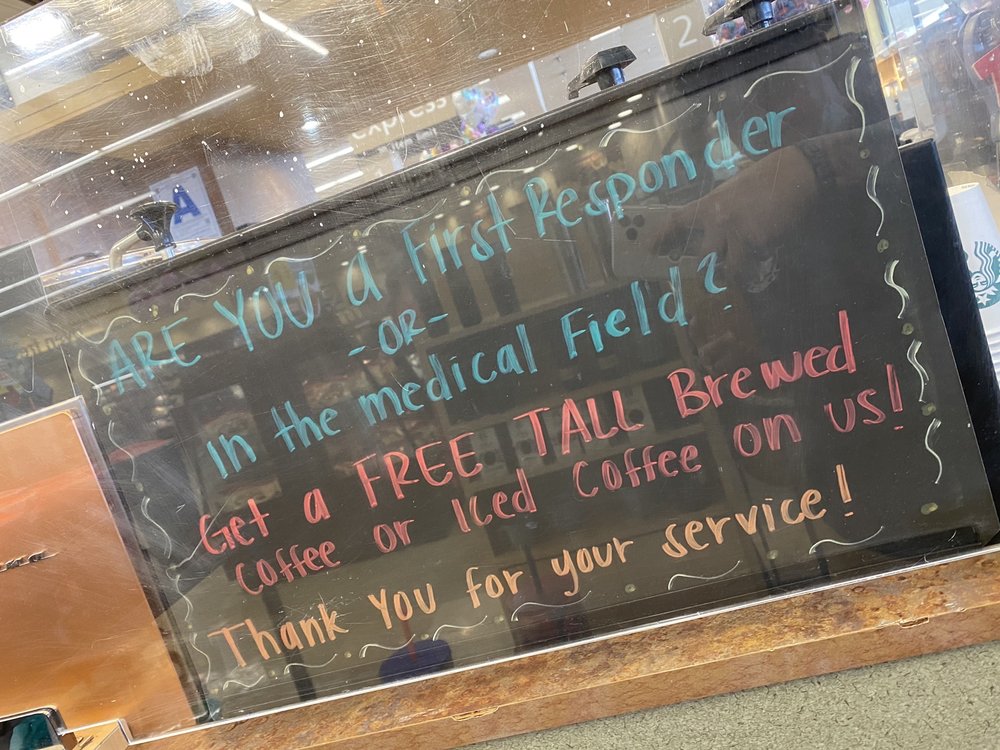 2
express
A
ARE YOU a First Responder
- OR -
in the medical Field?
Get a FREE TALL Brewed
Coffee or Iced Coffee on us!
Thank You for your service!